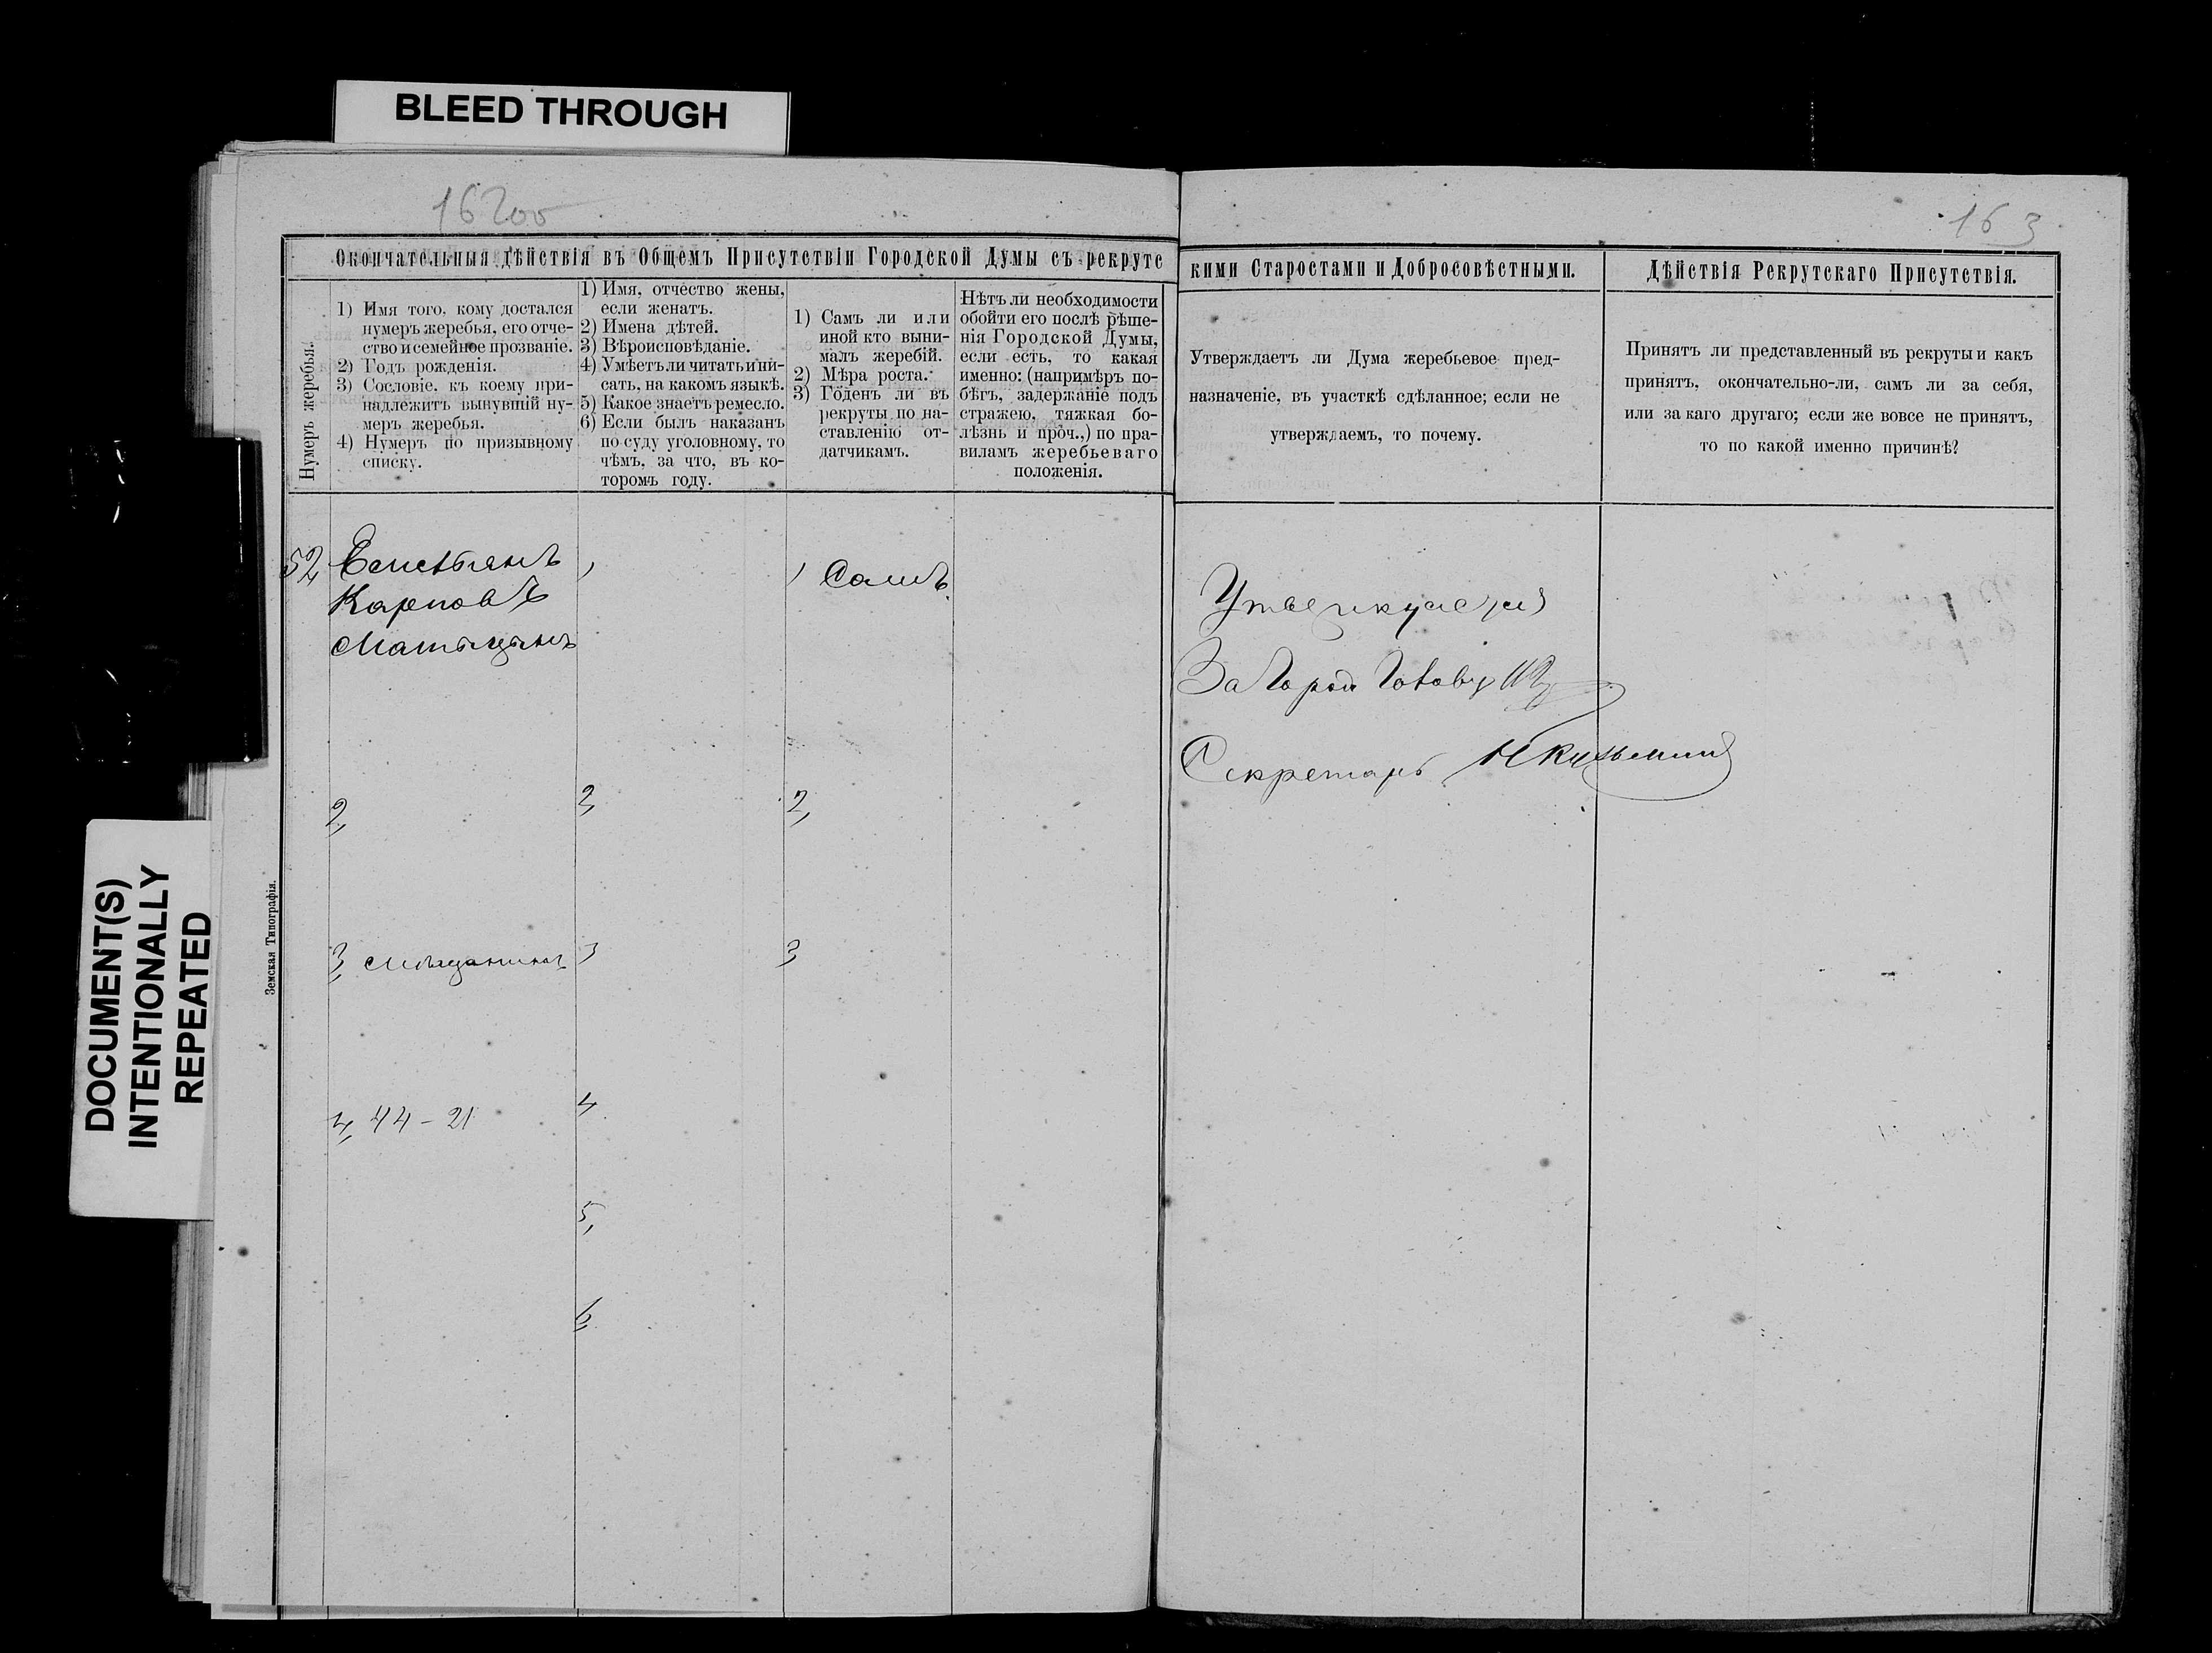 BLEED THROUGH
DOCUMENT(S)
INTENTIONALLY
REPEATED
162об
163
Окончательныя дѣйствія въ Общемъ Присутствіи Городской Думы съ рекрутс
кими Старостами и Добросовѣстными.
Дѣйствія Рекрутскаго Присутствія.
Нумеръ жеребья.
1) Имя того, кому достался
нумеръ жеребья, его отче-
ство и семейное прозваніе.
2) Годъ рожденія.
3) Сословіе, къ коему при-
надлежитъ вынувшій ну-
меръ жеребья.
4) Нумеръ по призывному
списку.
1) Имя, отчество жены,
если женатъ.
2) Имена дѣтей.
3) Вѣроисповѣданіе.
4) Умѣетъ ли читать и пи-
сать, на какомъ языкѣ.
5) Какое знаетъ ремесло.
6) Если былъ наказанъ
по суду уголовному, то
чѣмъ, за что, въ ко-
торомъ году.
1) Самъ ли или
иной кто выни-
малъ жеребій.
2) Мѣра роста.
3) Годенъ ли въ
рекруты по на-
ставленію от-
датчикамъ.
Нѣтъ ли необходимости
обойти его послѣ рѣше-
нія Городской Думы,
если есть, то какая
именно: (напримѣръ по-
бѣгъ, задержаніе подъ
стражею, тяжкая бо-
лѣзнь и проч.,) по пра-
виламъ жеребьеваго
положенія.
Утверждаетъ ли Дума жеребьевое пред-
назначеніе, въ участкѣ сдѣланное; если не
утверждаемъ, то почему.
Принятъ ли представленный въ рекруты и какъ
принятъ, окончательно-ли, самъ ли за себя,
или за каго другаго; если же вовсе не принятъ,
то по какой именно причинѣ?
52
Емельянъ
Карповъ
1
1 Самъ.
Утверждается
За Город Голову
Секретарь НКузьмин
2,
2,
2,
3, Мѣщанинъ
3
3
4, 44-21
4
5,
6,
Земская Типографія.